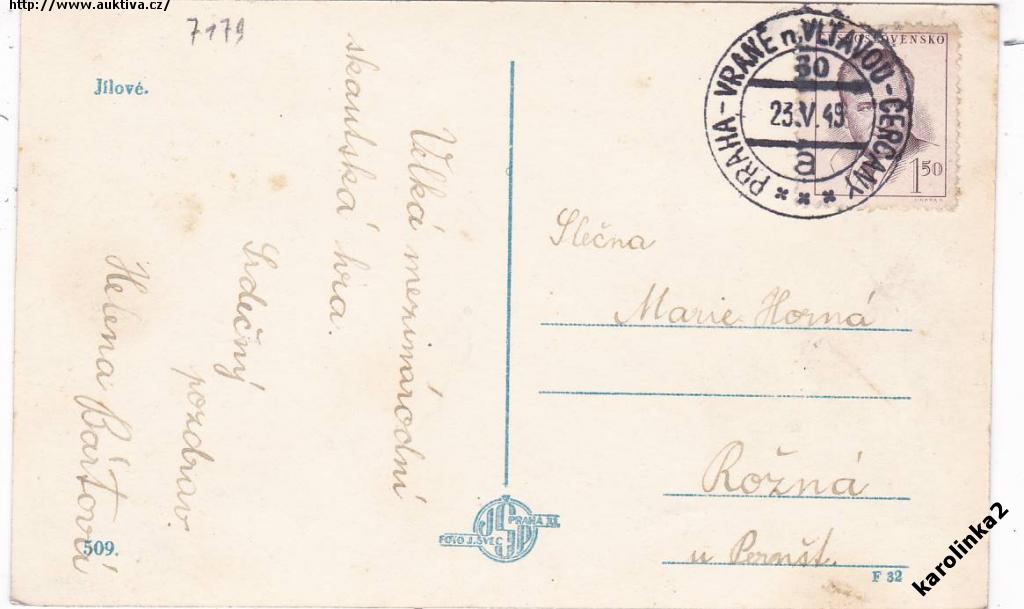 http://www.auktiva.cz/
7179
Jílové.
Velká mezinárodní
skautská hra.
Srdečný
pozdrav.
Helena Bártová
509.
FOTO J. ŠVEC
PRAHA XI.
PRAHA - VRANÉ n. VLTAVOU - ČERČANY
30
23.V.49
a
ČESKOSLOVENSKO
1 50
Slečna
Marie Horná
Rožná
u Pernšt.
F 32
karolinka2